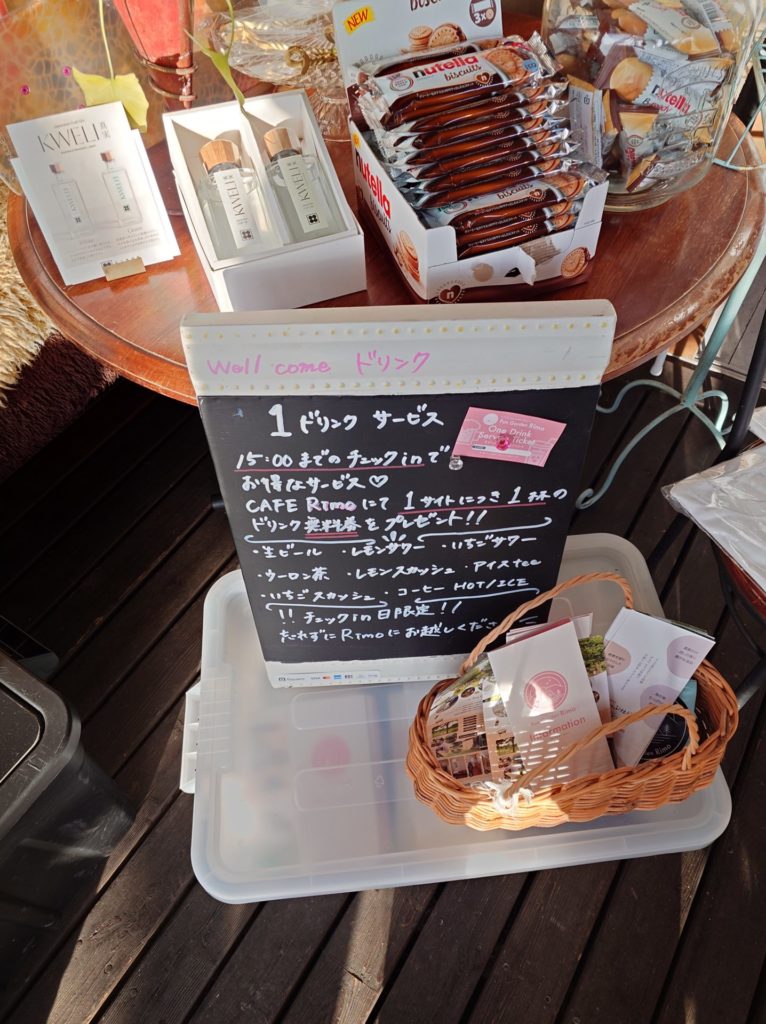 NEW
nutella
biscuits
KWELI 真実
KWELI
KWELI
nutella
biscuits
nutella
Well come ドリンク
1 ドリンク サービス
Fun Garden Rimo
One Drink
Service Ticket
15:00までのチェックinで
お得なサービス♡
CAFE Rimoにて 1サイトにつき1杯の
ドリンク無料券をプレゼント!!
・生ビール ・レモンサワー ・いちごサワー
・ウーロン茶 ・レモンスカッシュ ・アイスtee
・いちごスカッシュ ・コーヒー HOT/ICE
!! チェックin日限定!!
わすれずにRimoにお越しくださ
Information
Rimo